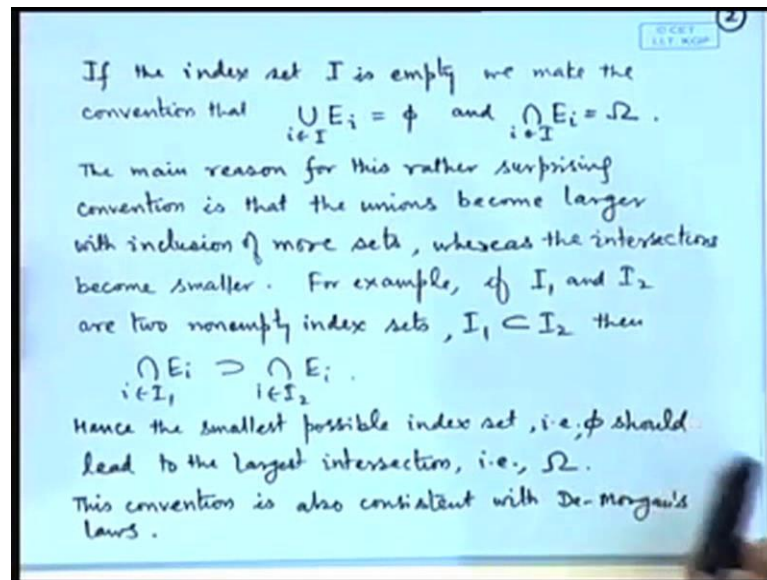 2
© CET
I.I.T. KGP
If the index set I is empty we make the
convention that ∪ E_i = φ and ∩ E_i = Ω .
i∈I i∈I
The main reason for this rather surprising
convention is that the unions become larger
with inclusion of more sets, whereas the intersections
become smaller. For example, if I₁ and I₂
are two nonempty index sets, I₁ ⊂ I₂ then
∩ E_i ⊃ ∩ E_i .
i∈I₁ i∈I₂
Hence the smallest possible index set, i.e, φ should
lead to the largest intersection, i.e., Ω.
This convention is also consistent with De-Morgan's
laws.